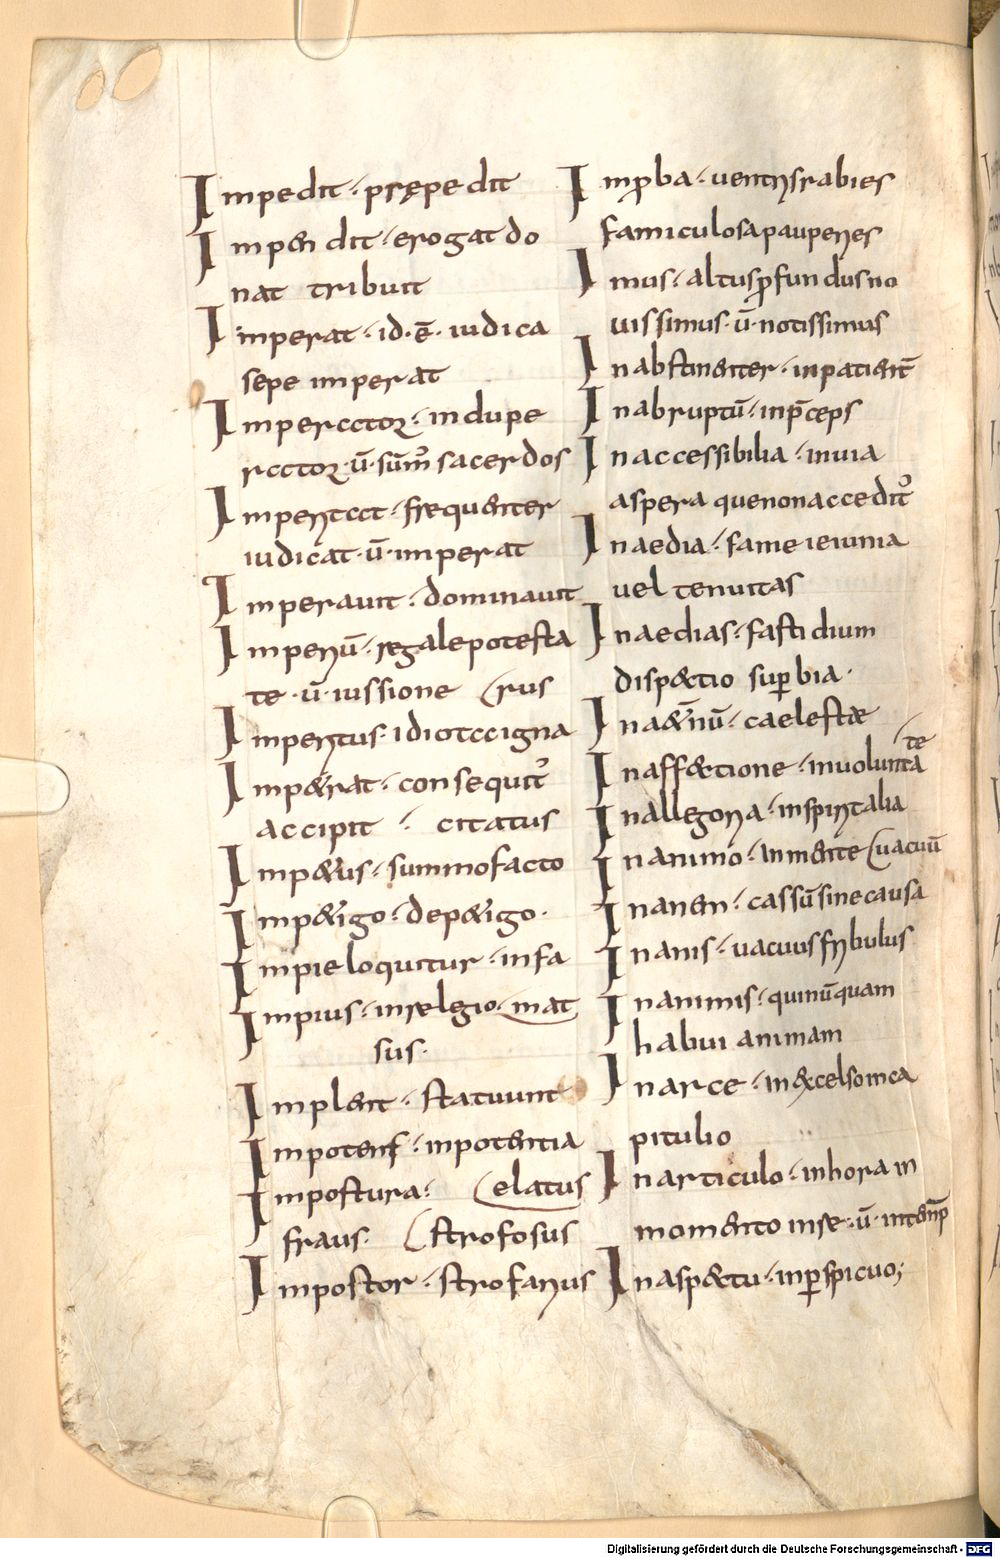 Impedit· prępedit
Impendit· erogat do
nat tribuit
Imperat· id·ē· iudica
sepe imperat
Imperator· indupe
rator· ū· sūm̄ sacerdos
Imperitat· frequenter
iudicat· ū· imperat
Imperauit· dominauit
Imperiū· regale potesta
te· ū· iussione (rus
Imperitus· idiota igna
Impetrat· consequit̉
accipit· citatus
Impetus· summo facto
Impetigo· depetigo·
Impie loquitur· infa
Impius· inrelegio· mat
sus·
Implent· statuunt
Impotens· inpotentia
Impostura· (elatus
fraus· (strofosus
Impostor· strofarius
Imꝓba· uentris rabies
famiculosa pauperies
Imus· altus ꝓfundus no
uissimus· ū· notissimus
Inabstinenter· inpatient̄
Inabruptū· inp̄ceps
Inaccessibilia· inuia
aspera que non accedit̉
Inaedia· fame ieiunia
uel tenuitas
Inaedias· fastidium
dispectio suꝑbia·
Inaet̄nū· caelestae
te
Inaffectione· inuolunta
Inallegoria· inspiritalia
Inanimo· inmente (uacuū
Inanem· cassū sine causa
Inanis· uacuus fribulus
Inanimis· qui nūquam
habui animam
Inarce· in excelso inca
pitulio
Inarticulo· inhora in
momento inse· ū· intemp̄
Inaspectu· inꝑspicuo;
Digitalisierung gefördert durch die Deutsche Forschungsgemeinschaft - DFG